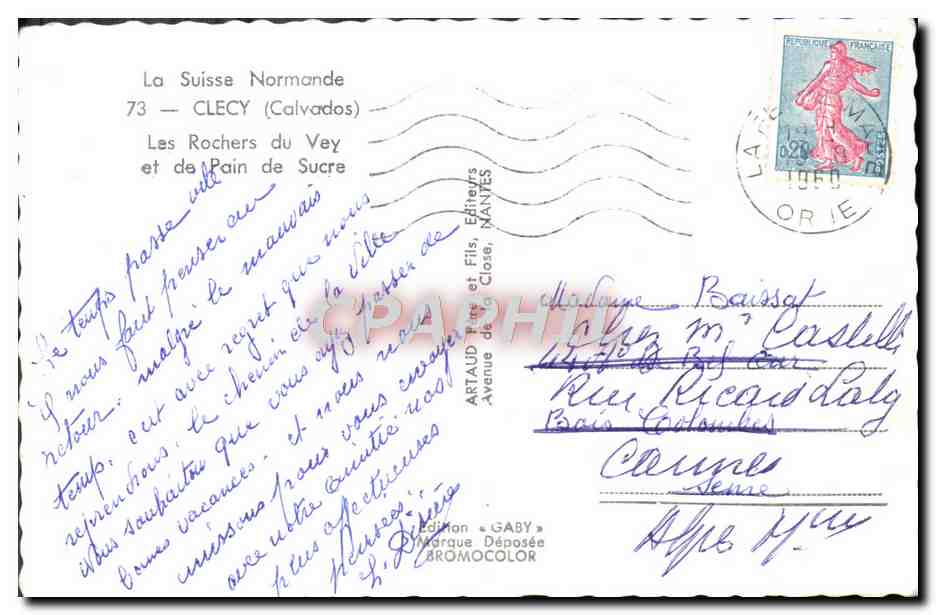 La Suisse Normande
73 — CLECY (Calvados)
Les Rochers du Vey
et de Pain de Sucre
Le temps passe vite
il nous faut penser au
retour. malgré le mauvais
temps. c'est avec regret que nous
reprendrons le chemin de la ville
Nous souhaitons que vous ayez passer de
bonnes vacances. et nous nous
unissons pour vous envoyer
avec notre amitié nos
plus affectueuses
pensées.
L. Désirée
ARTAUD Père et Fils, Editeurs
Avenue de la Close, NANTES
Edition « GABY »
Marque Déposée
BROMOCOLOR
REPUBLIQUE FRANÇAISE
0,20
1960
ORNE
CPAPHIL
Madame Baissat
chez Mr Castelli
Rue Ricard Laly
Bois Colombes
Cannes
Seine
Alpes Mmes